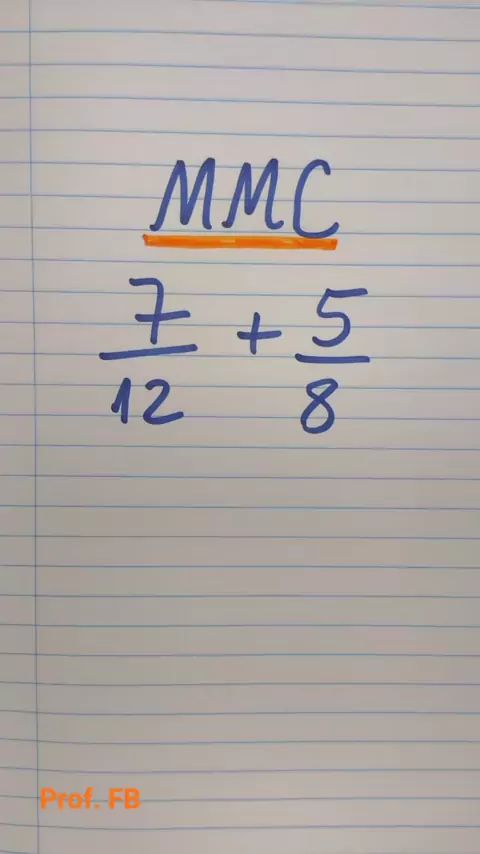 MMC
7/12 + 5/8
Prof. FB